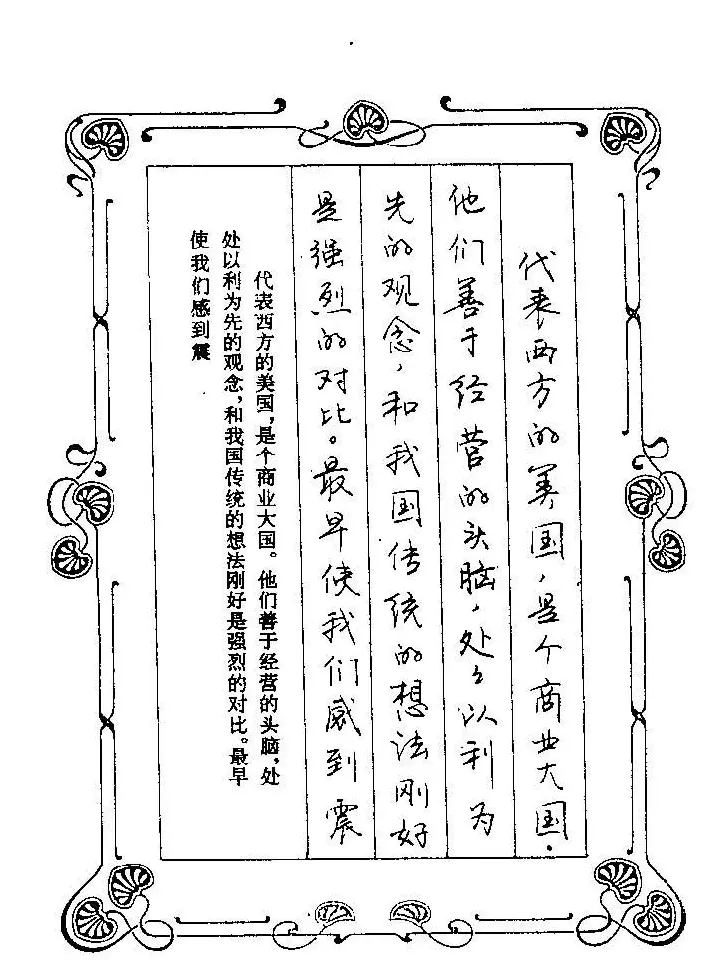 代表西方的美国,是个商业大国.
他们善于经营的头脑,处々以利为
先的观念,和我国传统的想法刚好
是强烈的对比。最早使我们感到震
代表西方的美国,是个商业大国。他们善于经营的头脑,处
处以利为先的观念,和我国传统的想法刚好是强烈的对比。最早
使我们感到震